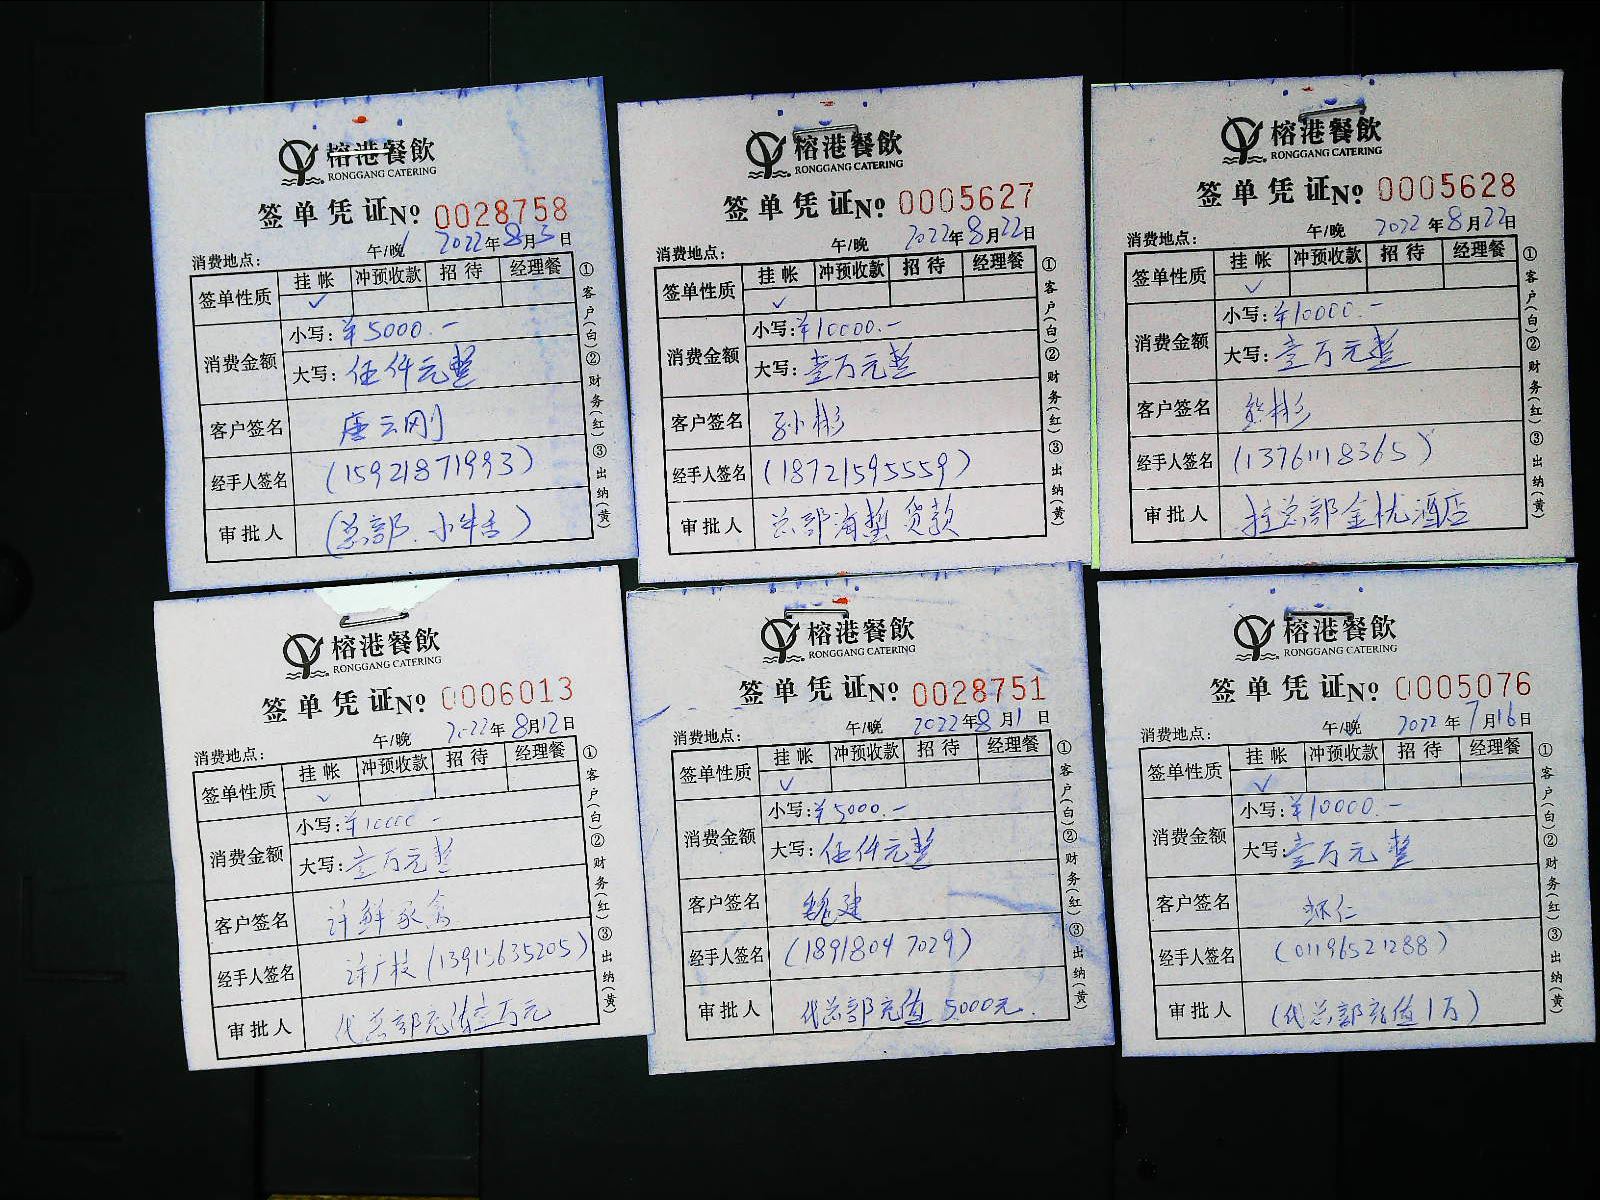 榕港餐飲
RONGGANG CATERING
签单凭证 № 0028758
消费地点： 午/晚 2022年8月3日
签单性质 挂帐 冲预收款 招待 经理餐
✓
消费金额 小写：¥5000.-
大写：伍仟元整
客户签名 唐云刚
经手人签名 (15921871993)
审批人 (总部、小牛舌)
①客户(白)②财务(红)③出纳(黄)
榕港餐飲
RONGGANG CATERING
签单凭证 № 0005627
消费地点： 午/晚 2022年8月22日
签单性质 挂帐 冲预收款 招待 经理餐
✓
消费金额 小写：¥10000.-
大写：壹万元整
客户签名 孙彬
经手人签名 (18721595559)
审批人 总部海蜇货款
①客户(白)②财务(红)③出纳(黄)
榕港餐飲
RONGGANG CATERING
签单凭证 № 0005628
消费地点： 午/晚 2022年8月22日
签单性质 挂帐 冲预收款 招待 经理餐
✓
消费金额 小写：¥10000.-
大写：壹万元整
客户签名 彬
经手人签名 (13761118365)
审批人 挂总部金优酒店
①客户(白)②财务(红)③出纳(黄)
榕港餐飲
RONGGANG CATERING
签单凭证 № 0006013
消费地点： 午/晚 2022年8月12日
签单性质 挂帐 冲预收款 招待 经理餐
✓
消费金额 小写：¥10000 -
大写：壹万元整
客户签名 许鲜家禽
经手人签名 许广枝 (13915635205)
审批人 代总部充值壹万元
①客户(白)②财务(红)③出纳(黄)
榕港餐飲
RONGGANG CATERING
签单凭证 № 0028751
消费地点： 午/晚 2022年8月1日
签单性质 挂帐 冲预收款 招待 经理餐
✓
消费金额 小写：¥5000.-
大写：伍仟元整
客户签名 魏建
经手人签名 (18918047029)
审批人 代总部充值 5000元.
①客户(白)②财务(红)③出纳(黄)
榕港餐飲
RONGGANG CATERING
签单凭证 № 0005076
消费地点： 午/晚 2022年7月16日
签单性质 挂帐 冲预收款 招待 经理餐
✓
消费金额 小写：¥10000.-
大写：壹万元整
客户签名 怀仁
经手人签名 (01196521288)
审批人 (代总部充值1万)
①客户(白)②财务(红)③出纳(黄)